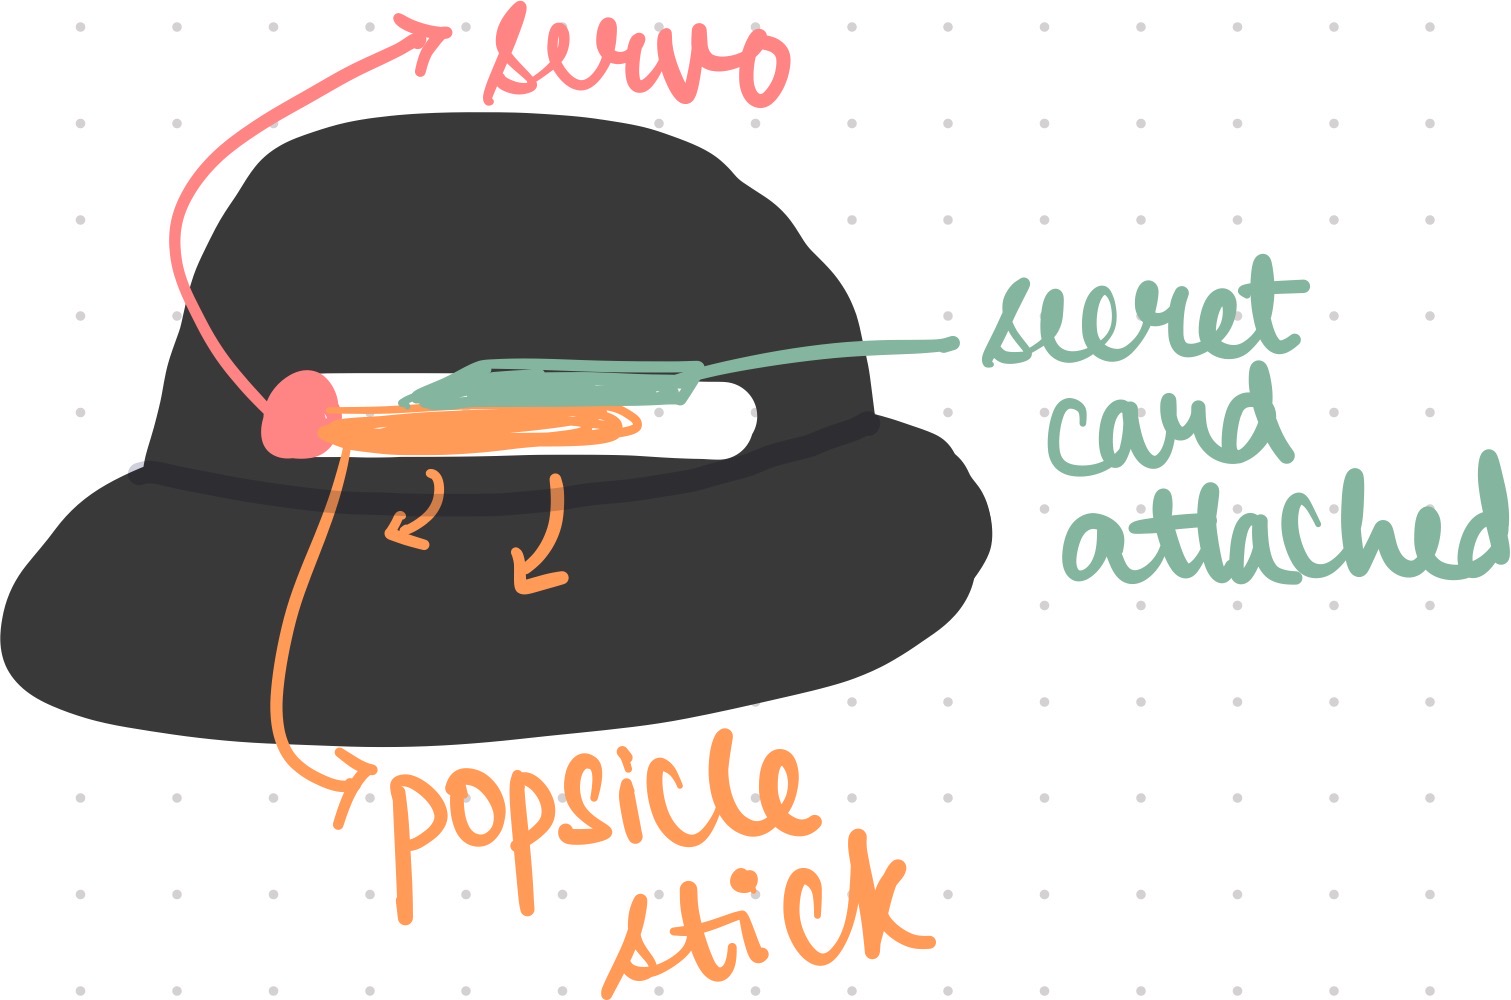 servo
secret
card
attached
popsicle
stick